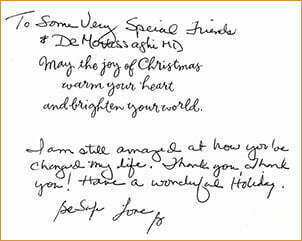 To Some Very Special Friends
& De MD
May the joy of Christmas
warm your heart
and brighten your world.
I am still amazed at how you've
changed my life. Thank you, Thank
you! Have a wonderful Holiday.
Love